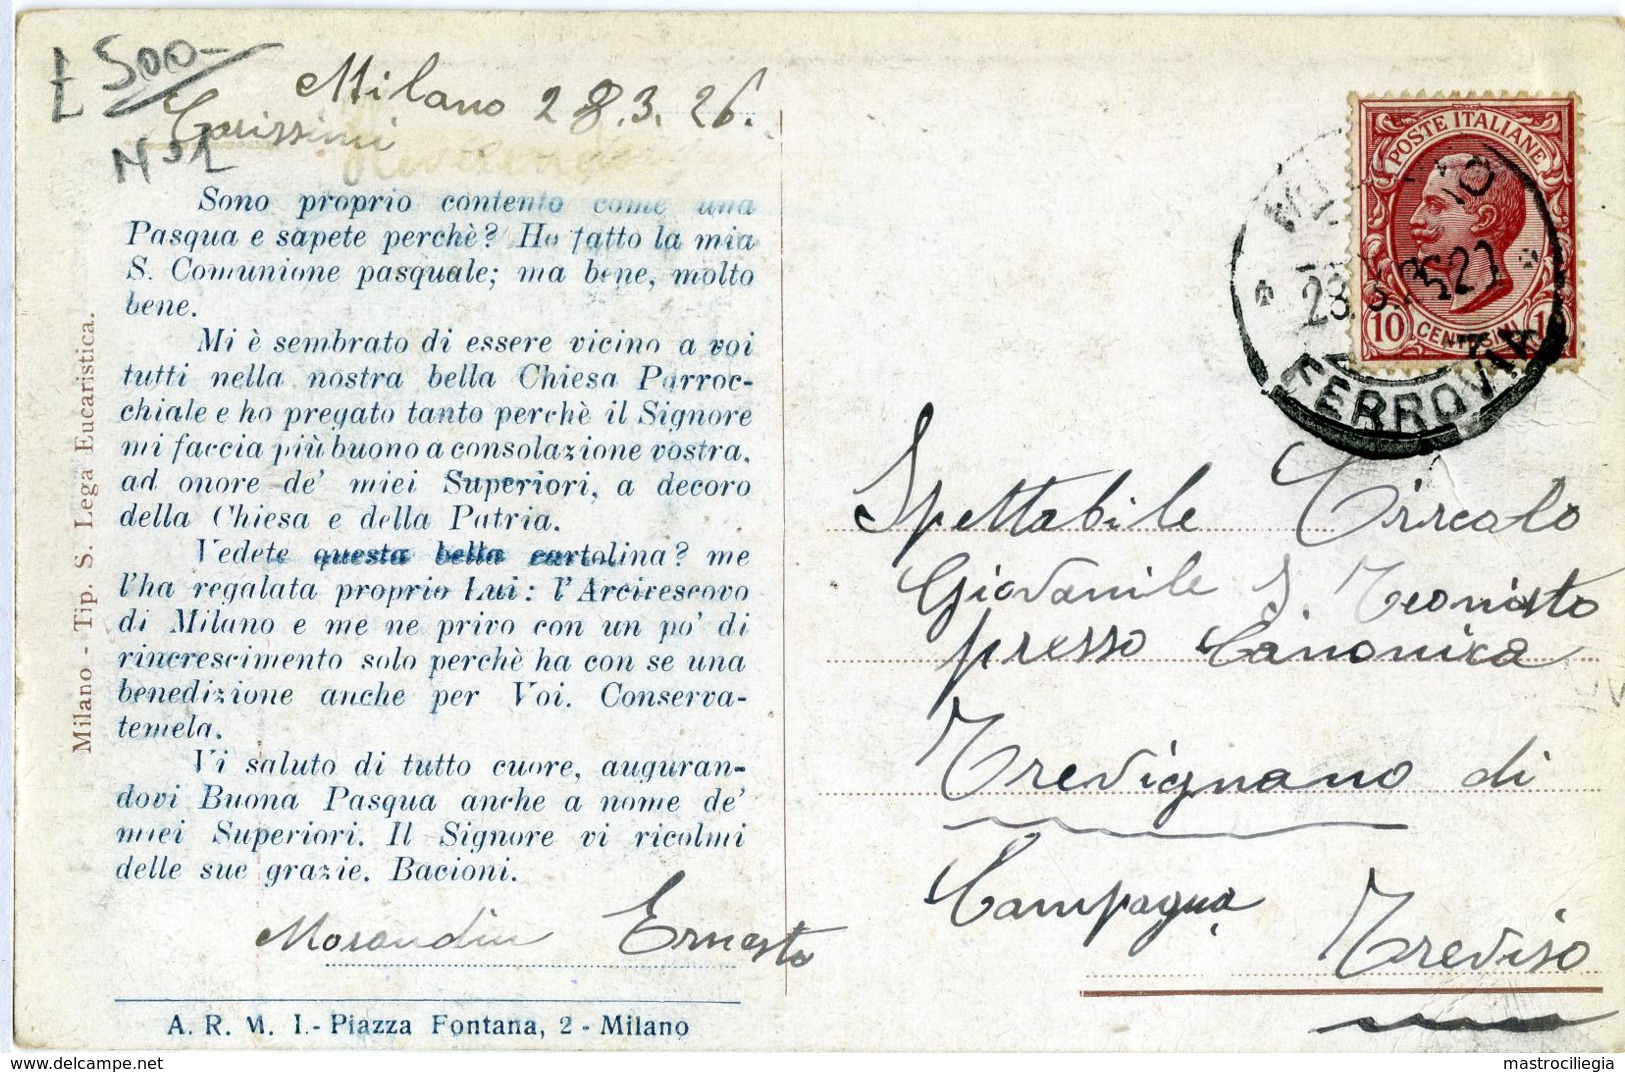 £ 500-
N° 1
Milano 28.3.26.
Carissimi
Sono proprio contento come una
Pasqua e sapete perchè? Ho fatto la mia
S. Comunione pasquale; ma bene, molto
bene.
Mi è sembrato di essere vicino a voi
tutti nella nostra bella Chiesa Parroc-
chiale e ho pregato tanto perchè il Signore
mi faccia più buono a consolazione vostra,
ad onore de' miei Superiori, a decoro
della Chiesa e della Patria.
Vedete questa bella cartolina? me
l'ha regalata proprio Lui: l'Arcivescovo
di Milano e me ne privo con un po' di
rincrescimento solo perchè ha con se una
benedizione anche per Voi. Conserva-
temela.
Vi saluto di tutto cuore, auguran-
dovi Buona Pasqua anche a nome de'
miei Superiori. Il Signore vi ricolmi
delle sue grazie. Bacioni.
Morandin Ernesto
A. R. M. I. - Piazza Fontana, 2 - Milano
Milano - Tip. S. Lega Eucaristica.
POSTE ITALIANE
10 CENTESIMI 10
FERROVIA
Spettabile Circolo
Giovanile S. Teonisto
presso Canonica
Trevignano di
Campagna
Treviso
mastrociliegia